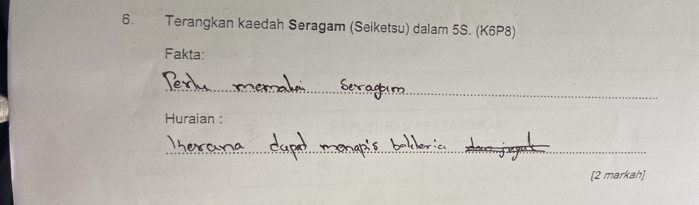 6. Terangkan kaedah Seragam (Seiketsu) dalam 5S. (K6P8)
Fakta:
Perlu memakai Seragam
Huraian :
kerana dapat menapis bakteria
[2 markah]